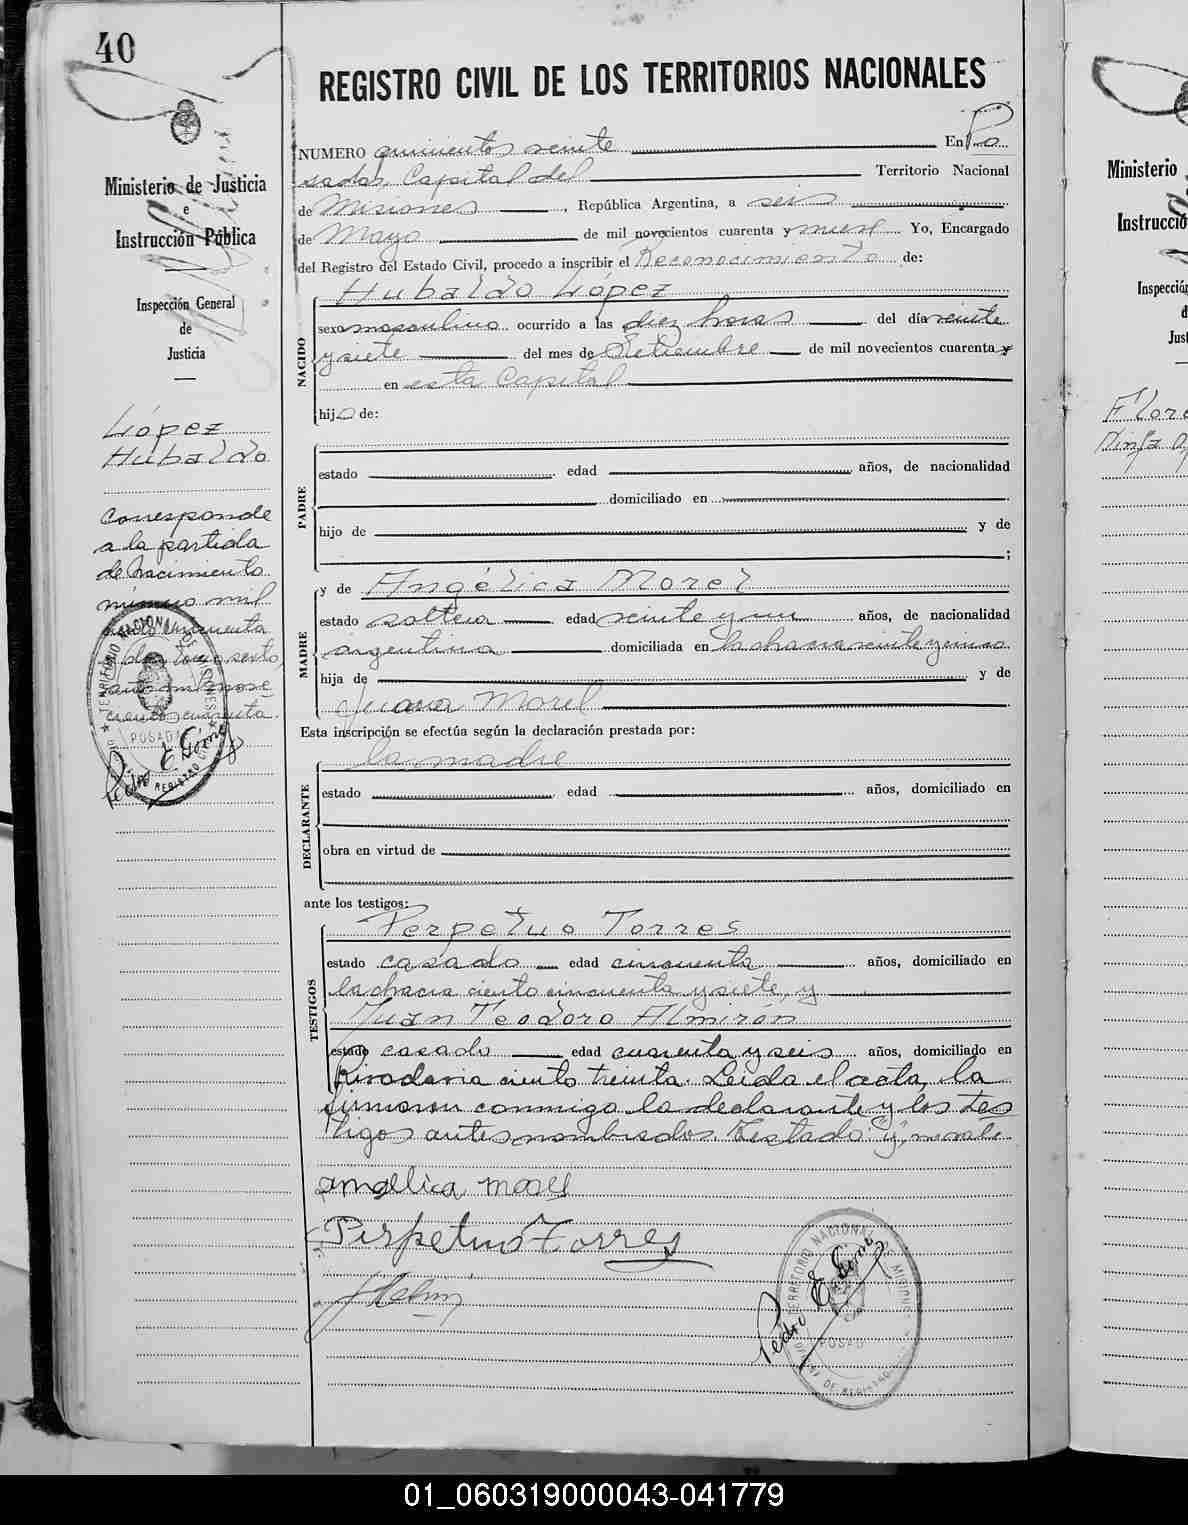 40
Ministerio de Justicia
e
Instrucción Pública
Inspección General
de
Justicia
López
Hubaldo
Corresponde
a la partida
de Nacimiento
número mil
cincuenta
tomo sexto,
año mil nove
cientos cuarenta.
TERRITORIO NACIONAL DE MISIONES
POSADAS
Pedro E. Gómez
REGISTRO CIVIL DE LOS TERRITORIOS NACIONALES
NUMERO quinientos veinte En Po
sadas, Capital del Territorio Nacional
de Misiones, República Argentina, a seis
de Mayo de mil novecientos cuarenta y nueve. Yo, Encargado
del Registro del Estado Civil, procedo a inscribir el Reconocimiento de:
NACIDO
Hubaldo López
sexo masculino ocurrido a las diez horas del día veinte
y siete del mes de Setiembre de mil novecientos cuarenta y
en esta Capital
hijo de:
PADRE
estado edad años, de nacionalidad
domiciliado en
hijo de y de
;
MADRE
y de Angélica Morel
estado soltera edad veinte y un años, de nacionalidad
argentina domiciliada en la chacra veinte y cinco
hija de y de
Juana Morel
Esta inscripción se efectúa según la declaración prestada por:
DECLARANTE
la madre
estado edad años, domiciliado en
obra en virtud de
ante los testigos:
TESTIGOS
Perpetuo Torres
estado casado edad cincuenta años, domiciliado en
la chacra ciento cincuenta y siete, y
Juan Teodoro Almirón
estado casado edad cuarenta y seis años, domiciliado en
Rivadavia ciento treinta. Leida el acta, la
firmaron conmigo la declarante y los tes
tigos antes nombrados. Testado: "y", no vale
Angelica Morel
Perpetuo Torres
TERRITORIO NACIONAL DE MISIONES
POSADAS
Pedro E. Gómez
Ministerio
Instrucció
Inspección
d
Just
01_060319000043-041779